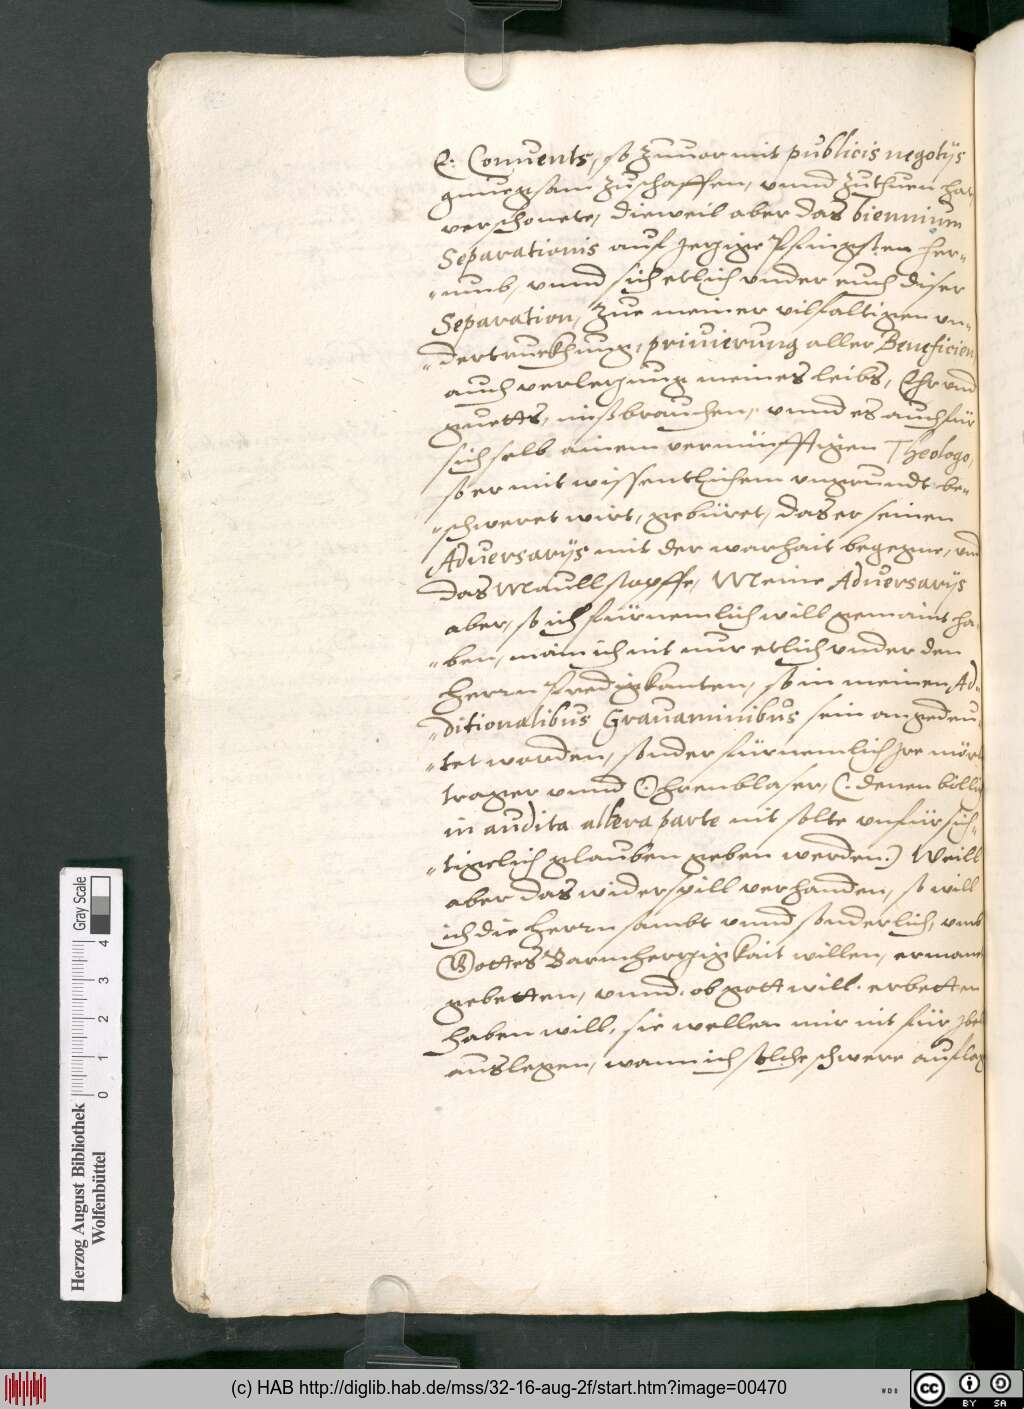 E. Conuents, so zuuor mit publicis negotijs
gnuegsam zuschaffen, vnnd zuthuen hat,
verschonete, dieweil aber das biennium
Separationis auf jezige Pfingsten her-
"umb, vnnd sich etlich vnder euch diser
Separation, zue meiner vilfaltigen vn-
"dertruckhung, priuierung aller Beneficien
auch verlezung meines leibs, Ehr vnd
guetts, mißbrauchen, vnnd es auch für
sich selb ainem vernünfftigen Theologo,
so er mit wissentlichem vngrundt be-
"schweret wirt, gebüret, das er seinen
Adversarijs mit der warhait begegne, vnd
das Maull stopffe, Meine Adversarijs
aber, so ich fürnemlich will gemaint ha-
"ben, main ich nit nur etlich vnder den
Herrn Predigkanten, so in meinen Ad-
"ditionalibus Gravaminibus sein angedeu-
"tet worden, sonder fürnemlich jre mör
trager vnnd Ohrenblaser, (: denen billich
in audita altera parte nit solte vnfürsich-
"tigelich glauben geben werden:) Weill
aber das widerspill verhanden, so will
ich die Herrn sambt vnnd sonderlich, vmb
Gottes Barmherzigkait willen, ermanet
gebetten, vnnd, ob gott will, erbetten
haben will, sie wellen mir nit für jbel
auslegen, wann ich solche schwere auflag
Herzog August Bibliothek
Wolfenbüttel
0 1 2 3 4
Gray Scale
(c) HAB http://diglib.hab.de/mss/32-16-aug-2f/start.htm?image=00470
WDB
cc BY SA